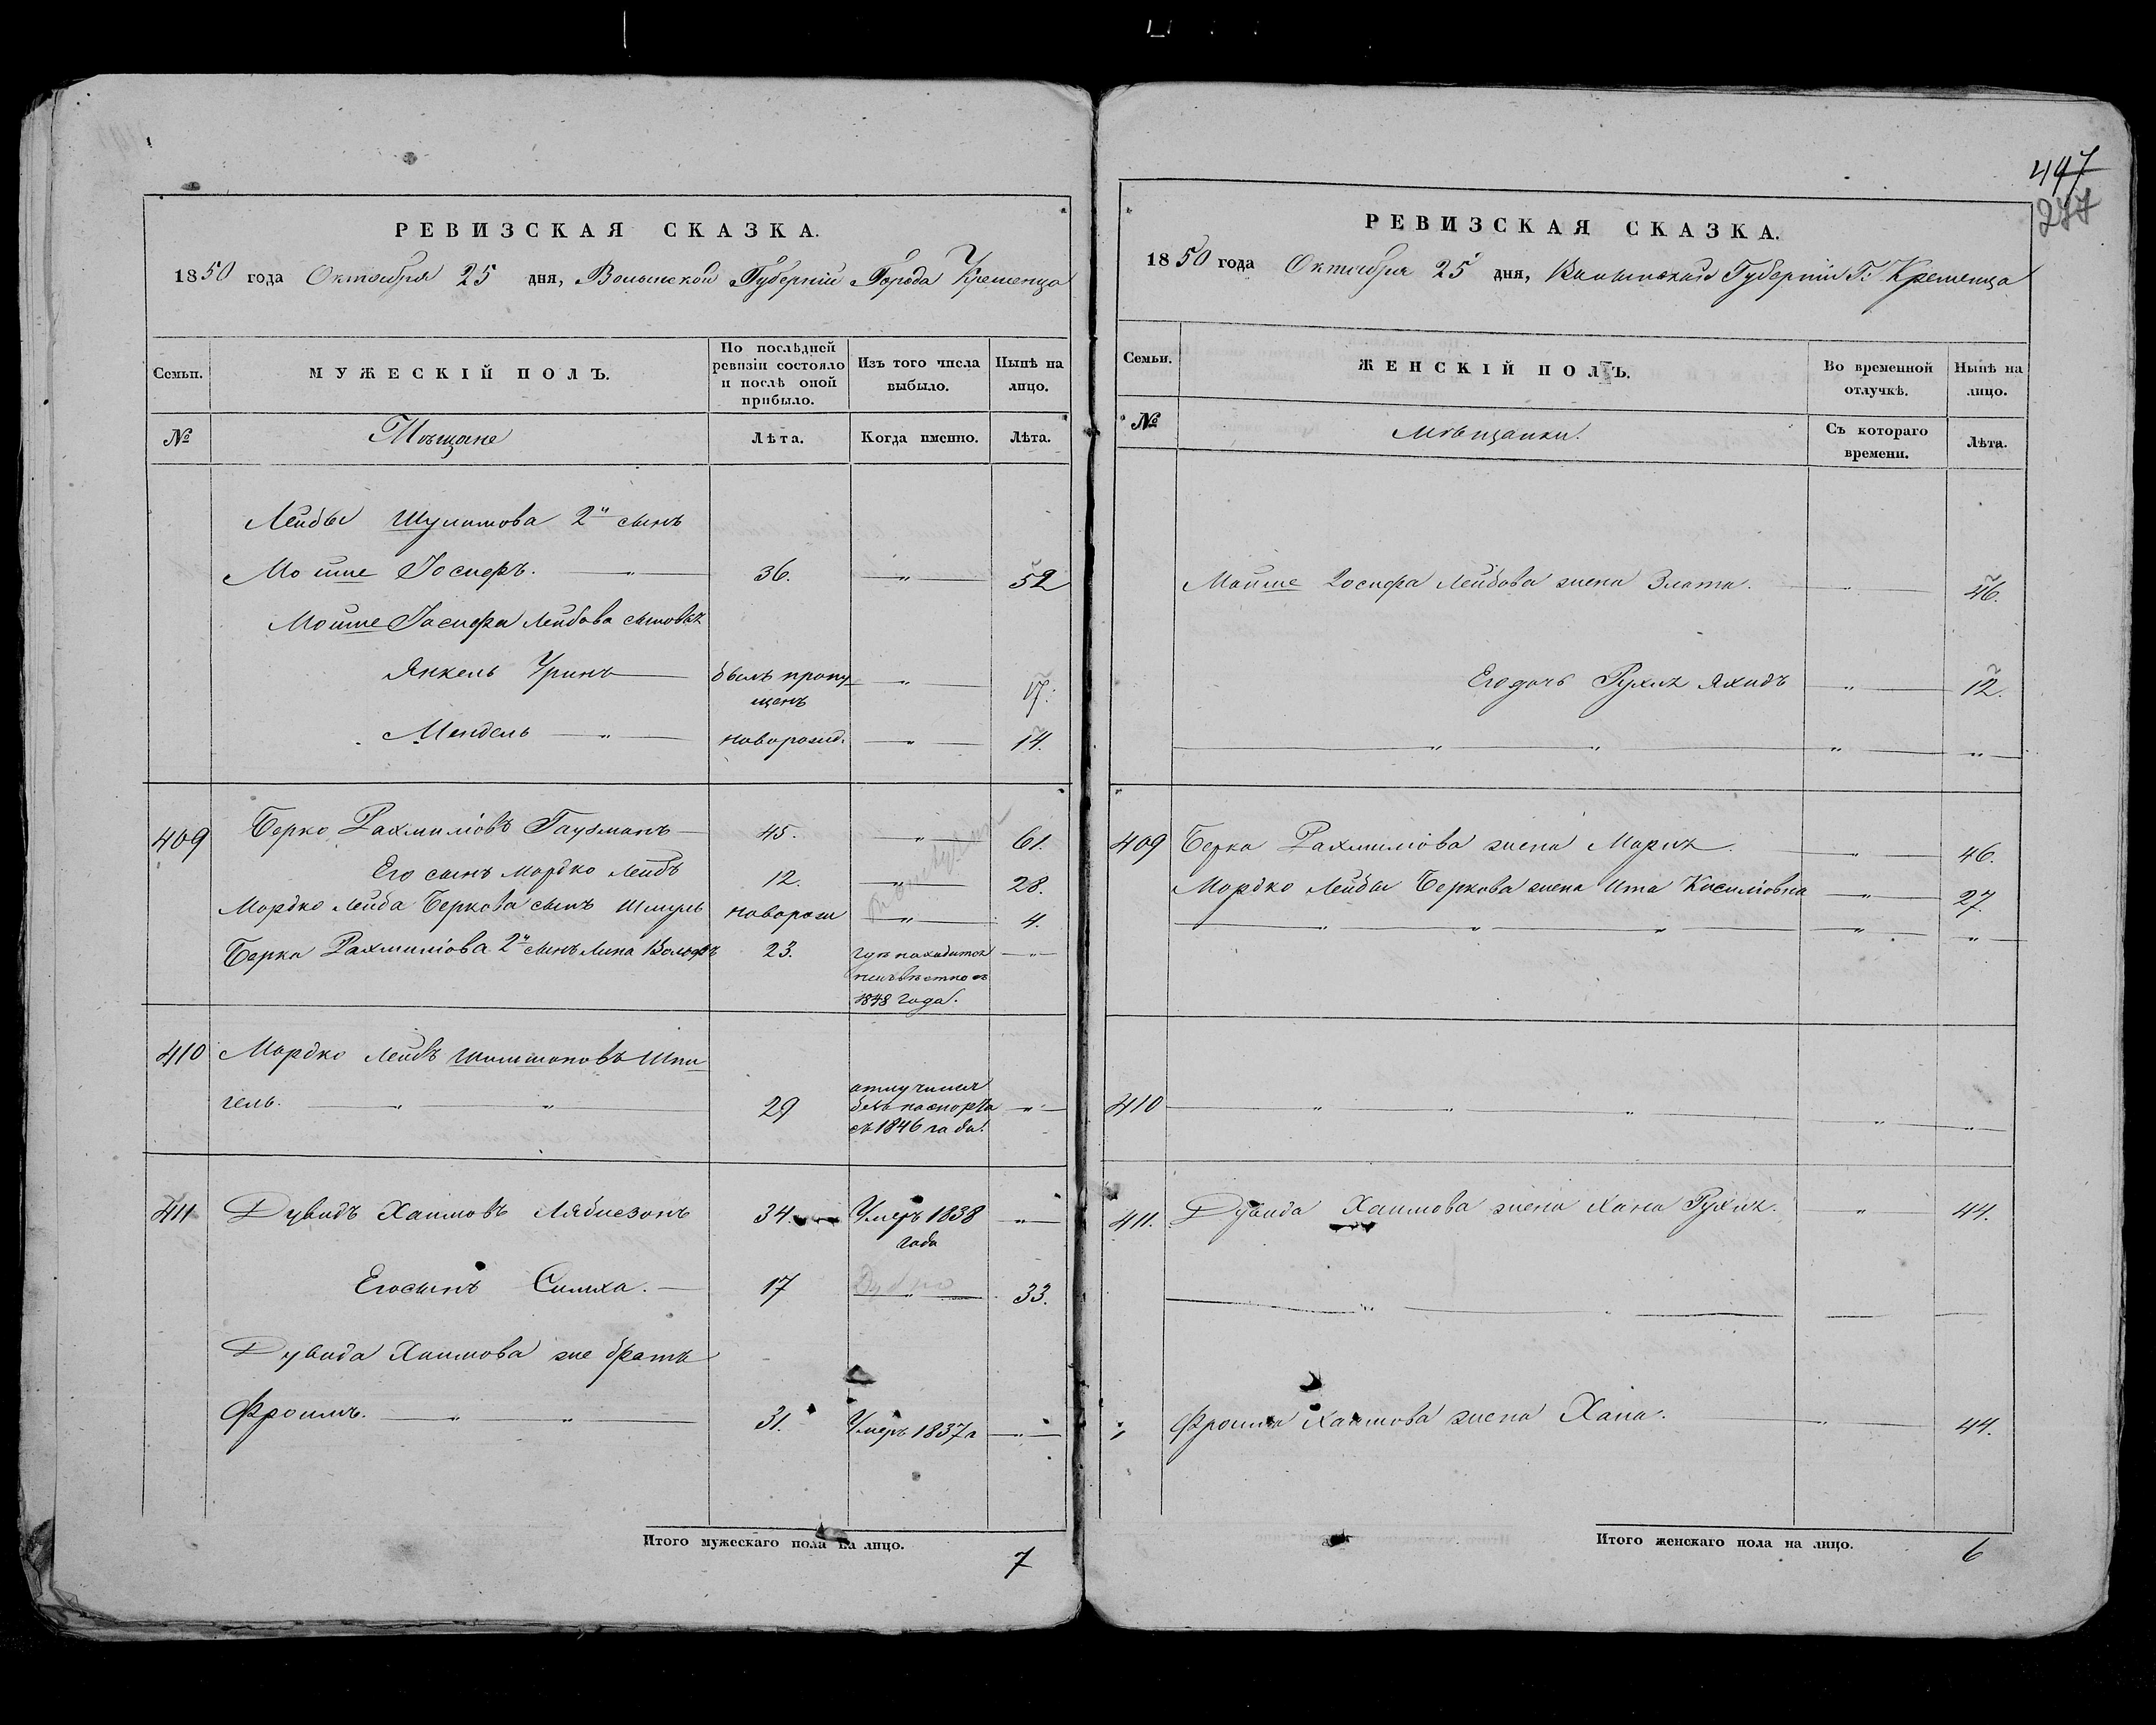 РЕВИЗСКАЯ СКАЗКА.
1850 года Октября 25 дня, Волынской Губерніи Города Кременца
Семьи. МУЖЕСКІЙ ПОЛЪ. По послѣдней ревизіи состояло и послѣ оной прибыло. Изъ того числа выбыло. Нынѣ на лицо.
№ Мѣщане Лѣта. Когда именно. Лѣта.
Лейбы Шулимова 2й сынъ
Мошие Іосифъ. " 36. " 52
Мошие Іосифа Лейбова сыновья
Янкель Уринъ былъ пропущенъ " 17.
Мендель " новорожд. " 14.
409 Берко Рахмиліовъ Гаузманъ 45. " 61.
Его сынъ Мордко Лейбъ 12. " 28.
Мордко Лейба Беркова сынъ Шмуль новорож " 4.
Берка Рахмиліова 2й сынъ Липа Вольфъ 23. гдѣ находится неизвѣстно съ 1848 года. "
410 Мордко Лейбъ Шлиомовъ Шпи
гель. " " 29 отлучился безъ паспорта съ 1846 года. "
411 Дувидъ Хаимовъ Лябисзонъ 34. Умеръ 1838 года "
Его сынъ Симха. 17 Дубно " 33.
Дувида Хаимова же братъ
Фроимъ. " " 31. Умеръ 1837 г "
Итого мужескаго пола на лицо. 7
447
277
РЕВИЗСКАЯ СКАЗКА.
1850 года Октября 25 дня, Волынской Губерніи Г. Кременца
Семьи. ЖЕНСКІЙ ПОЛЪ. Во временной отлучкѣ. Нынѣ на лицо.
№ Мѣщанки. Съ котораго времени. Лѣта.
Мошие Іосифа Лейбова жена Злата. " 46.
Его дочь Рухля Яхидъ " 12.
" " " "
409 Берка Рахмиліова жена Марія. " 46.
Мордко Лейбы Беркова жена Ита Кисиліовна " 27.
" " " " "
410 " " " " "
411. Дувида Хаимова жена Хана Рухля. " 44.
" "
" Фроима Хаимова жена Хана. " 44.
Итого женскаго пола на лицо. 6